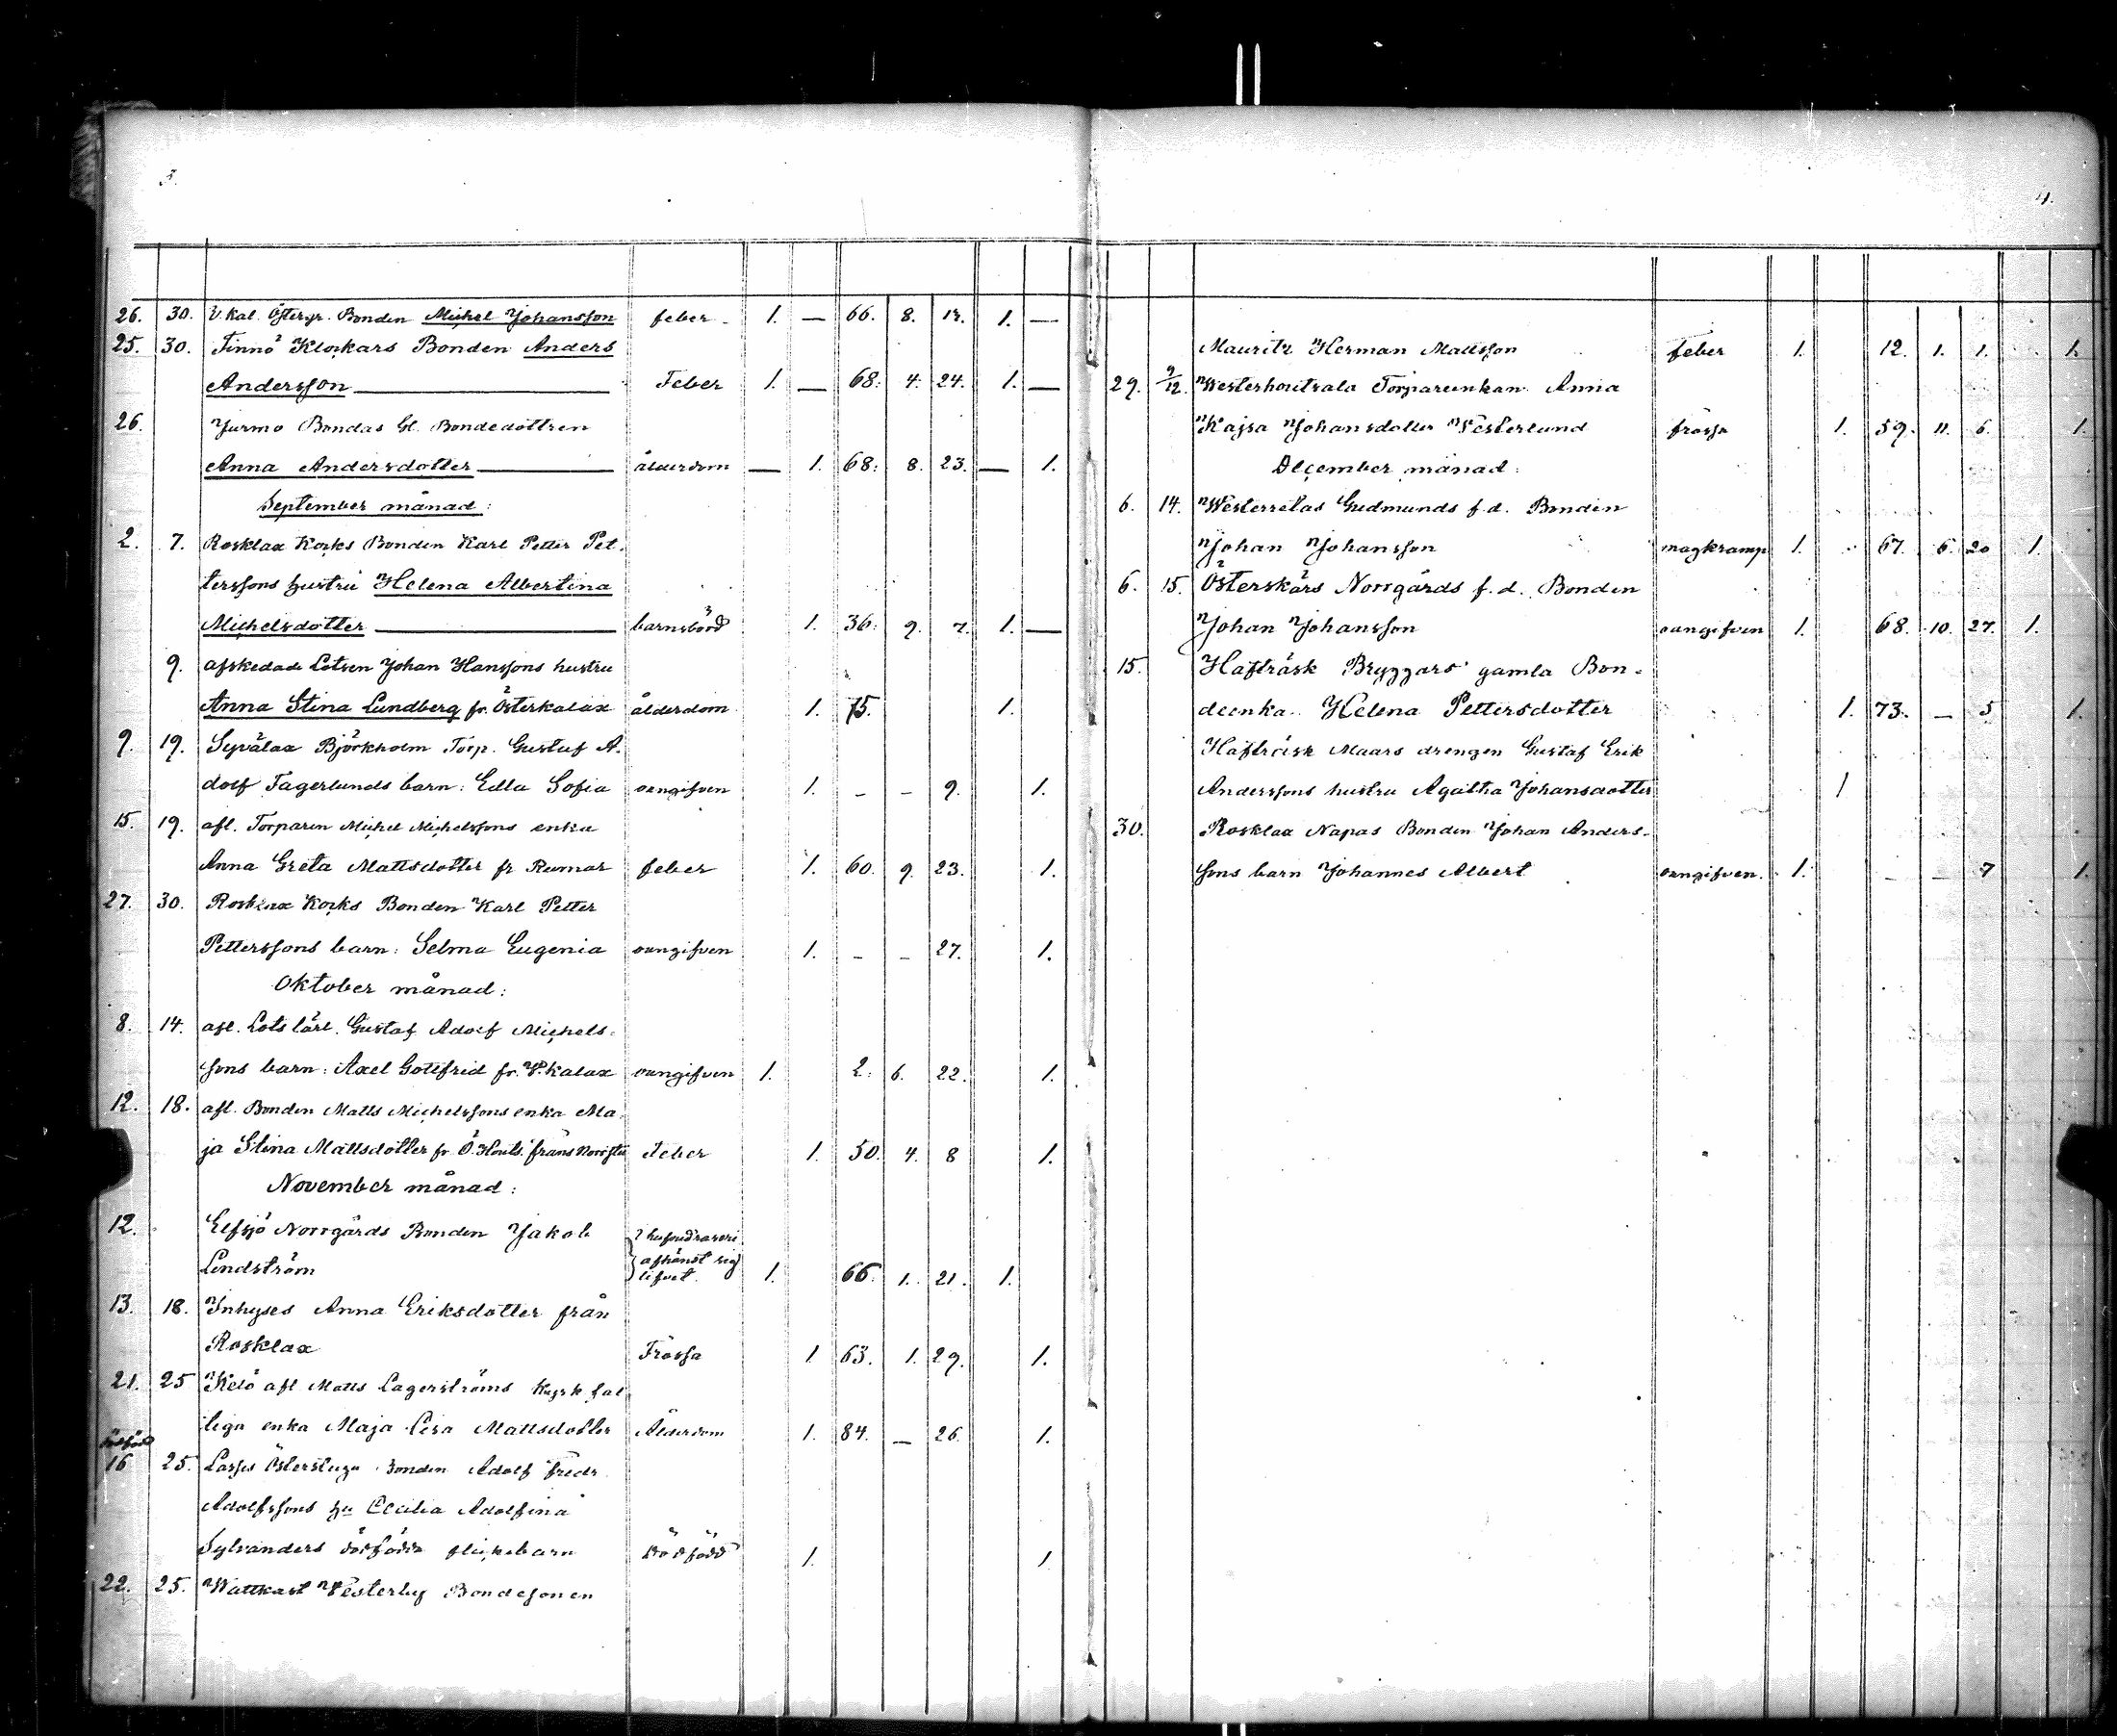 3.
26. 30. V. Kal. Östergr. Bonden Michel Johansson feber 1. — 66. 8. 12. 1. —
25. 30. Finnö Klockars Bonden Anders
Andersson — Feber 1. — 68. 4. 24. 1. —
26. Jurmo Bondas Gl. Bondedottren
Anna Andersdotter — ålderdom — 1. 68. 8. 23. — 1.
September månad:
2. 7. Rosklax Korks Bonden Karl Petter Pet-
terssons hustru Helena Albertina
Michelsdotter — barnsbörd 1. 36. 9. 7. 1. —
9. afskedade Lotsen Johan Hanssons hustru
Anna Stina Lundberg fr. Österkalax ålderdom 1. 75. 1.
9. 19. Syvälax Björkholm Torp. Gustaf A.
dolf Fagerlunds barn: Edla Sofia oangifven 1. – – 9. 1.
15. 19. afl. Torparen Michel Michelssons enka
Anna Greta Mattsdotter fr Rumar feber 1. 60. 9. 23. 1.
27. 30. Rosklax Korks Bonden Karl Petter
Petterssons barn: Selma Eugenia oangifven 1. – – 27. 1.
Oktober månad:
8. 14. afl. Lots lärl. Gustaf Adolf Michels-
sons barn: Axel Gottfrid fr. V. Kalax oangifven 1. 2. 6. 22. 1.
12. 18. afl. Bonden Matts Michelssons enka Ma-
ja Stina Mattsdotter fr Ö. Houts. Feber 1. 50. 4. 8 1.
November månad:
12. Elfsjö Norrgårds Bonden Jakob
Lindström afhändt sig lifvet. 1. 66. 1. 21. 1.
13. 18. Inhyses Anna Eriksdotter från
Rosklax Frossa 1. 63. 1. 29. 1.
21. 25 Kelö afl Matts Lagerströms Kyrk fat
tiga enka Maja Lisa Mattsdotter Ålderdom 1. 84. — 26. 1.
dödfödd
16 25. Lasses Bonden Adolf Fredr.
Adolfssons hu Cecilia Adolfina
Sylvanders dödfödda flickebarn Dödfödd 1. 1
22. 25. Wattkast Vesterby Bondesonen
4.
Mauritz Herman Mattsson Feber 1. 12. 1. 1. 1.
29. 9/12. Westerhoutskala Torpareenkan Anna
Kajsa Johansdotter Vesterlund frossa 1. 59. 11. 6. 1.
December månad:
6. 14. Westerretas Gudmunds f.d. Bonden
Johan Johansson magkramp 1. 67. 6. 20 1.
6. 15. Österskärs Norrgårds f.d. Bonden
Johan Johansson oangifven 1. 68. 10. 27. 1.
15. Hafträsk Bryggars gamla Bon-
deenka Helena Pettersdotter 1. 73. – 5 1.
Hafträsk Maars drengen Gustaf Erik
Anderssons hustru Agatha Johansdotter 1
30. Rosklax Napas Bonden Johan Anders-
sons barn Johannes Albert oangifven. 1. – – 7 1.